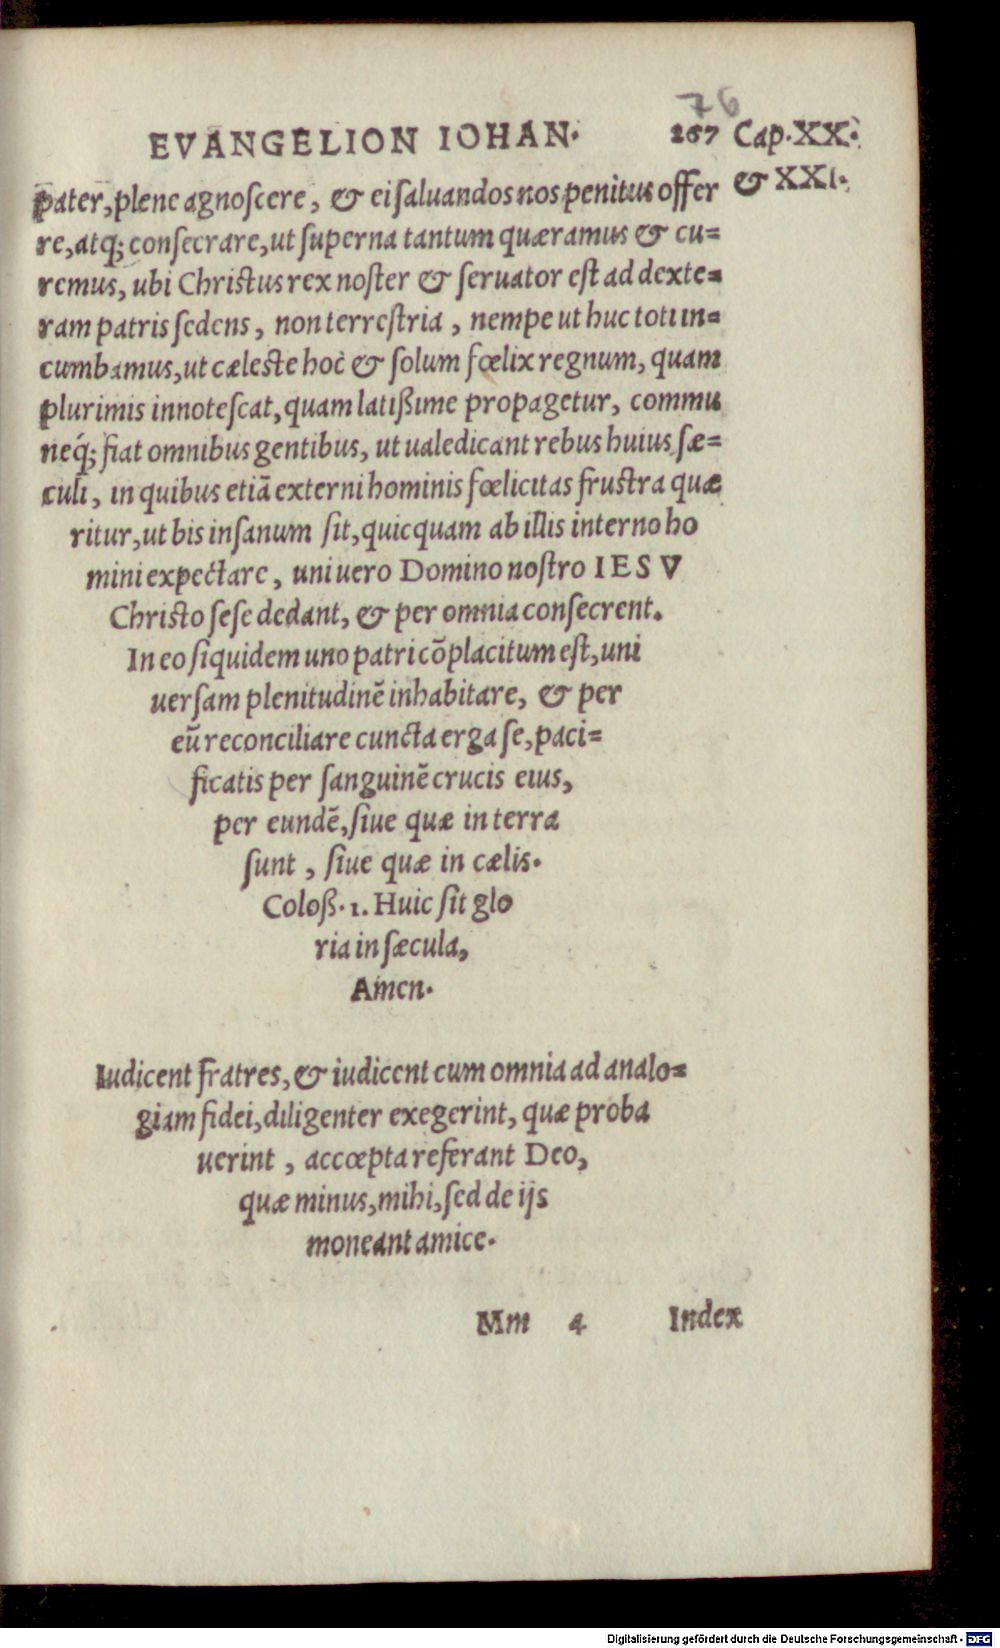 76
EVANGELION IOHAN. 267 Cap. XX.
& XXI.
pater, plene agnoscere, & ei saluandos nos penitus offer
re, atq; consecrare, ut superna tantum quæramus & cu=
remus, ubi Christus rex noster & seruator est ad dexte=
ram patris sedens, non terrestria, nempe ut huc toti in=
cumbamus, ut cæleste hoc & solum fœlix regnum, quam
plurimis innotescat, quam latißime propagetur, commu
neq́; fiat omnibus gentibus, ut ualedicant rebus huius sæ=
culi, in quibus etiā externi hominis fœlicitas frustra quæ
ritur, ut bis insanum sit, quicquam ab illis interno ho
mini expectare, uni uero Domino nostro IESV
Christo sese dedant, & per omnia consecrent.
In eo siquidem uno patri cōplacitum est, uni
uersam plenitudinē inhabitare, & per
eū reconciliare cuncta erga se, paci=
ficatis per sanguinē crucis eius,
per eundē, siue quæ in terra
sunt, siue quæ in cælis.
Coloß. 1. Huic sit glo
ria in sæcula,
Amen.
Iudicent fratres, & iudicent cum omnia ad analo=
giam fidei, diligenter exegerint, quæ proba
uerint, accœpta referant Deo,
quæ minus, mihi, sed de ijs
moneant amice.
Mm 4 Index
Digitalisierung gefördert durch die Deutsche Forschungsgemeinschaft - DFG